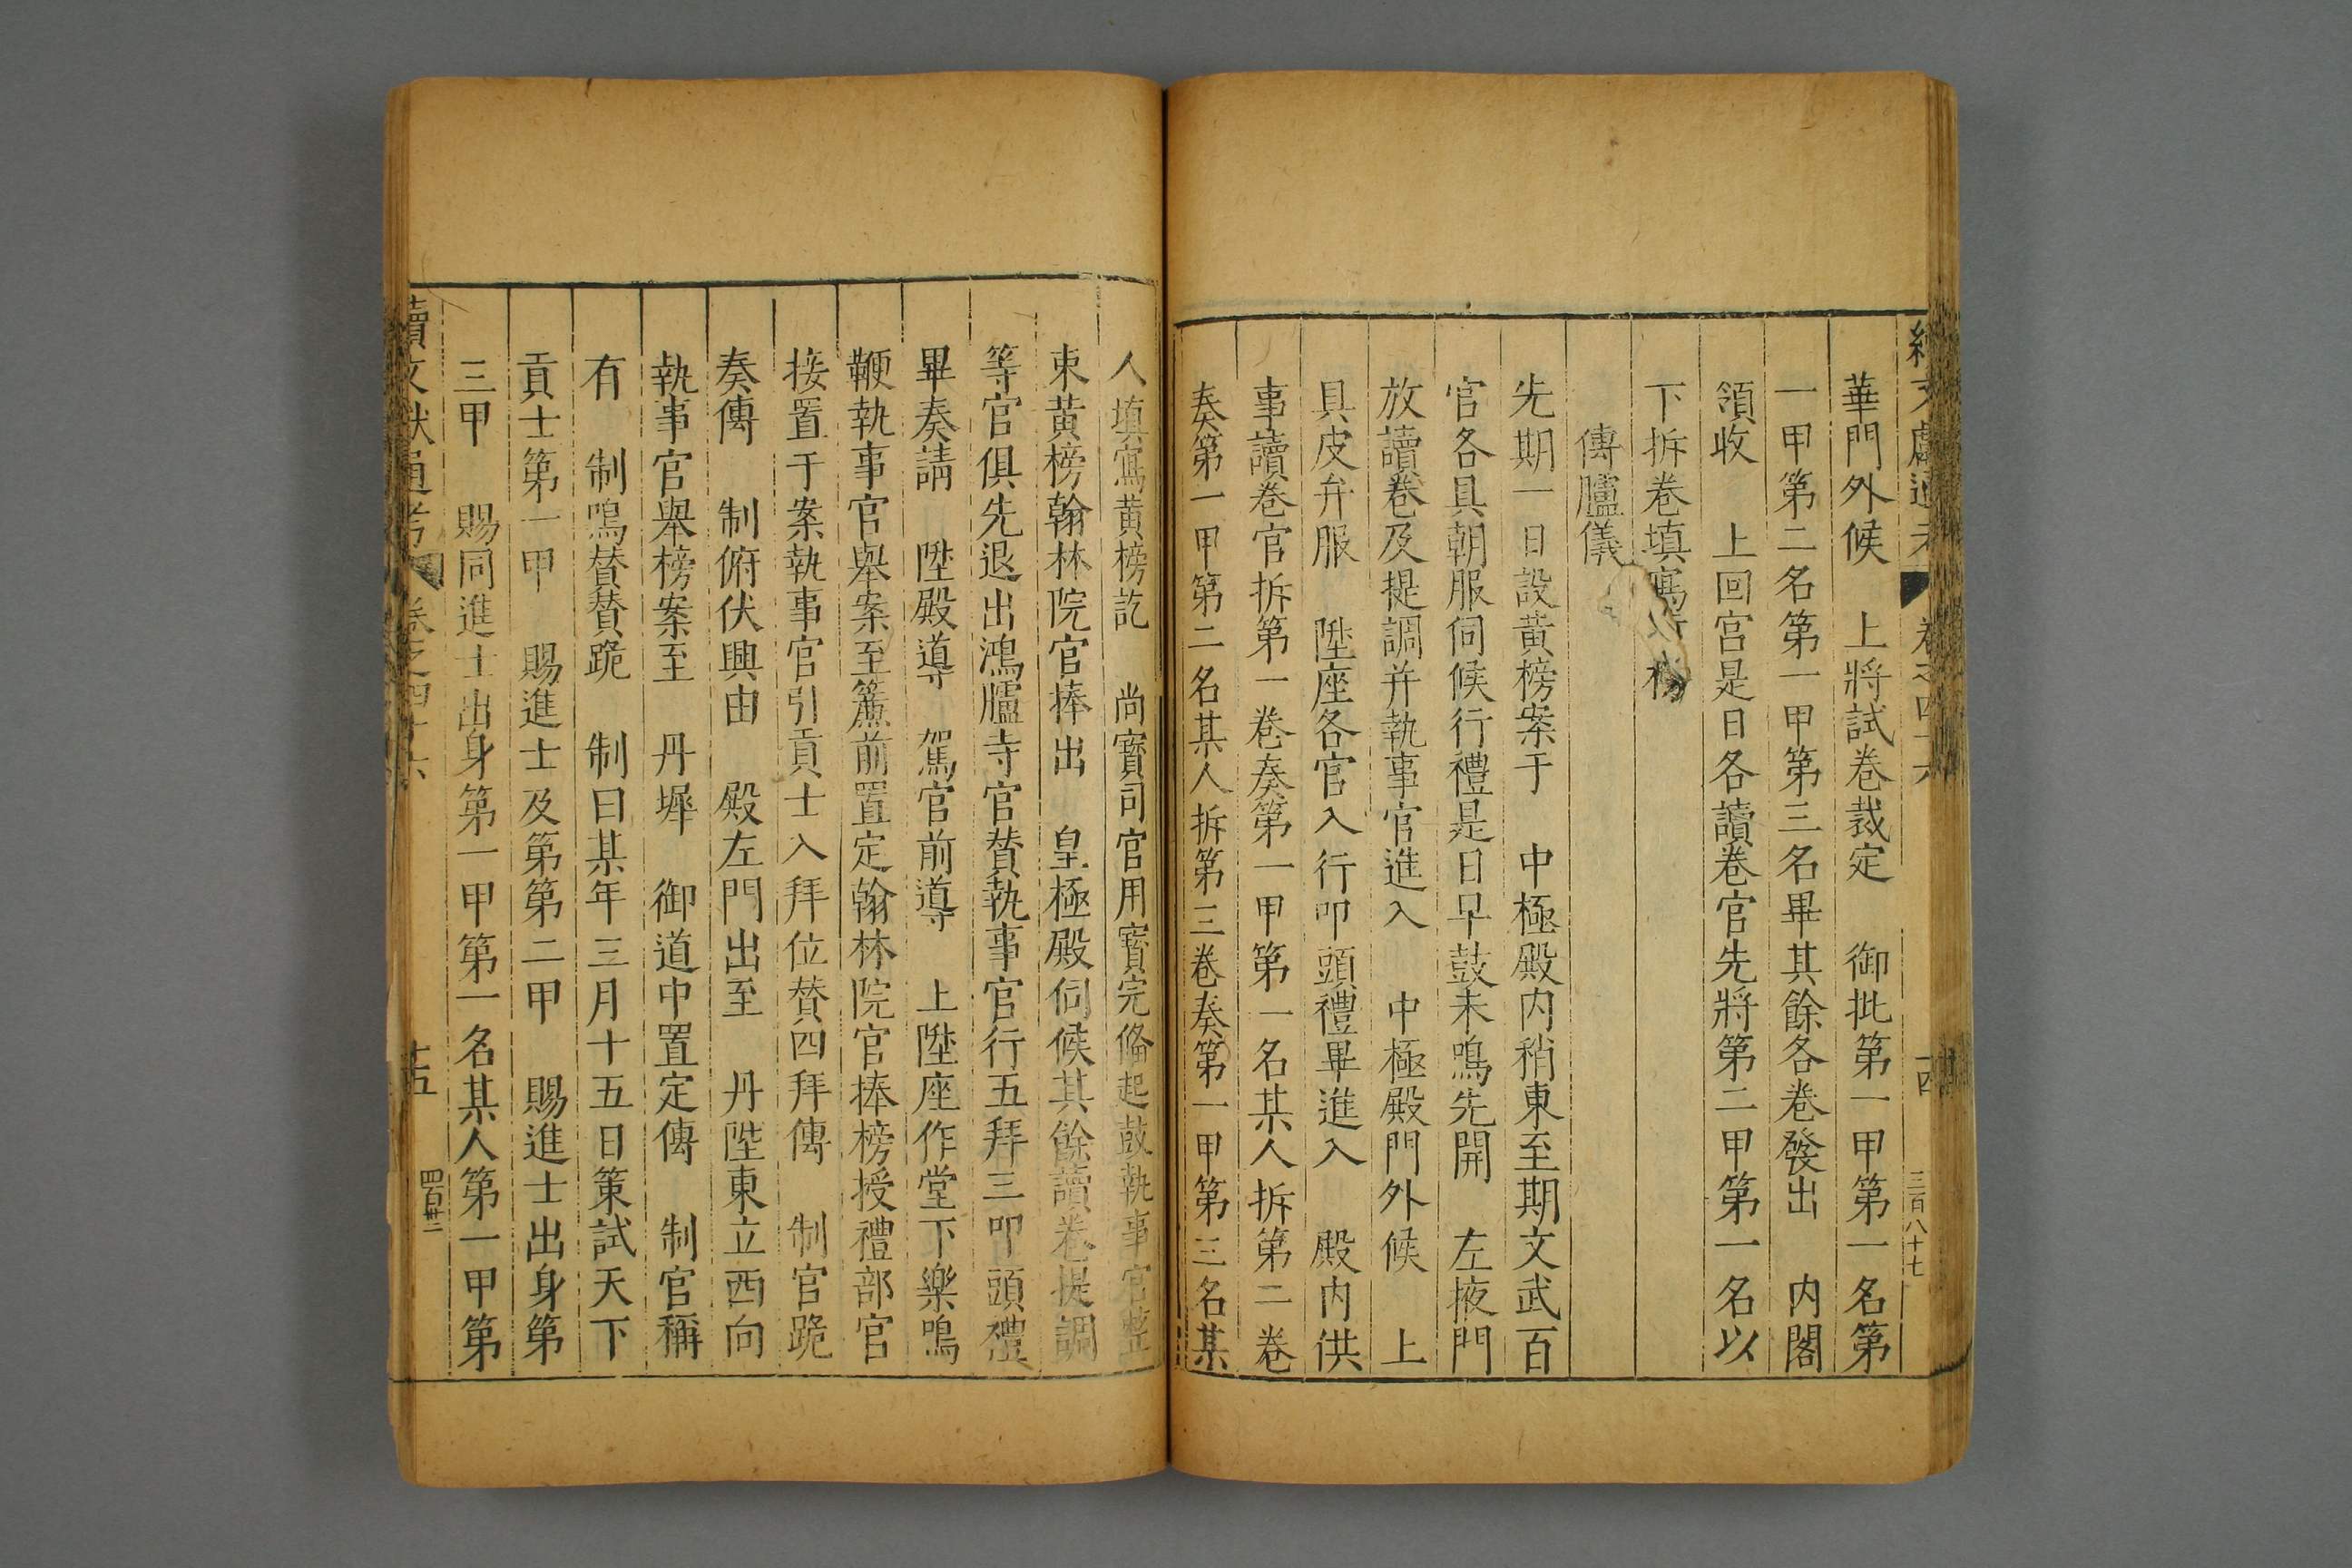 華門外候　上將試卷裁定　御批第一甲第一名第
一甲第二名第一甲第三名畢其餘各卷發出　內閣
領收　上回宮是日各讀卷官先將第二甲第一名以
下拆卷填寫榜
傳臚儀
先期一日設黃榜案于　中極殿內稍東至期文武百
官各具朝服伺候行禮是日早鼓未鳴先開　左掖門
放讀卷及提調并執事官進入　中極殿門外候　上
具皮弁服　陞座各官入行叩頭禮畢進入　殿內供
事讀卷官拆第一卷奏第一甲第一名某人拆第二卷
奏第一甲第二名某人拆第三卷奏第一甲第三名某
人填寫黃榜訖　尚寳司官用寳完俻起鼓執事官整
束黃榜翰林院官捧出　皇極殿伺候其餘讀卷提調
等官俱先退出鴻臚寺官贊執事官行五拜三叩頭禮
畢奏請　陞殿導　駕官前導　上陞座作堂下樂鳴
鞭執事官舉案至簾前置定翰林院官捧榜授禮部官
接置于案執事官引貢士入拜位贊四拜傳　制官跪
奏傳　制俯伏興由　殿左門出至　丹陛東立西向
執事官舉榜案至　丹墀　御道中置定傳　制官稱
有　制鳴贊贊跪　制曰某年三月十五日策試天下
貢士第一甲　賜進士及第第二甲　賜進士出身第
三甲　賜同進士出身第一甲第一名某人第一甲第
續文獻通考　卷之四十六　十五　四百廿二
續文獻通考　卷之四十六　十四　三百八十七